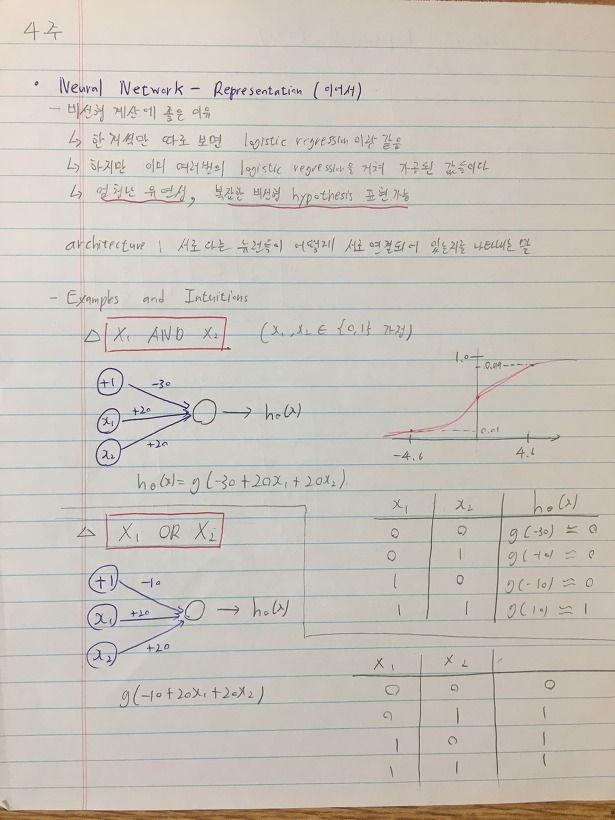 4주
• Neural Network - Representation (이어서)
- 비선형 계산에 좋은 이유
↳ 한 개씩만 따로 보면 logistic regression이랑 같음
↳ 하지만 이미 여러번의 logistic regression을 거쳐 가공된 값들이다
↳ 엄청난 유연성, 복잡한 비선형 hypothesis 표현가능
architecture : 서로 다른 뉴런들이 어떻게 서로 연결되어 있는지를 나타내는 말
- Examples and Intuitions
△ X₁ AND X₂ (x₁, x₂ ∈ {0,1} 가정)
+1 -30
x₁ +20 → h₀(x)
x₂ +20
1.0 0.99
0.01
-4.6 4.6
h₀(x) = g(-30+20x₁+20x₂).
x₁ x₂ h₀(x)
0 0 g(-30) ≈ 0
0 1 g(-10) ≈ 0
1 0 g(-10) ≈ 0
1 1 g(10) ≈ 1
△ X₁ OR X₂
+1 -10
x₁ +20 → h₀(x)
x₂ +20
g(-10+20x₁+20x₂)
x₁ x₂
0 0 0
0 1 1
1 0 1
1 1 1